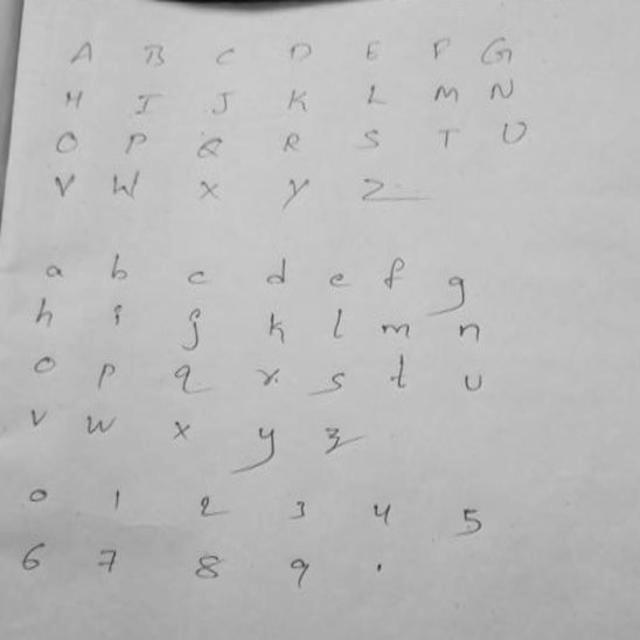 A B C D E F G
H I J K L M N
O P Q R S T U
V W X Y Z
a b c d e f g
h i j k l m n
o p q r s t u
v w x y z
0 1 2 3 4 5
6 7 8 9 .